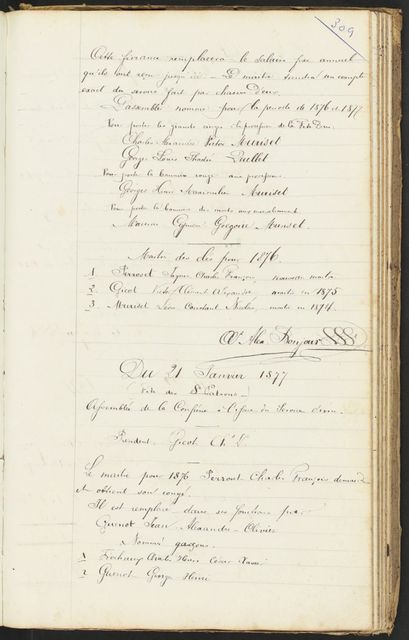 309
Cette finance remplacera le salaire fixe annuel
qu'ils ont reçu jusqu'ici — Le maître tiendra un compte
exact du service fait par chacun d'eux.
L'assemblée nomme pour la période de 1876 et 1877
Pour porter les grands cierges à la procession de la Fête Dieu
Charles Alexandre Victor Muriset
Georges Louis Ruedin
Pour porter la bannière rouge aux processions
Georges Henri Maximilien Muriset
Pour porter la bannière des morts aux enterrements
Maurice Grégoire Muriset.
Maîtres des clés pour 1876.
1 Perroset Charles François, nouveau maître
2 Gicot Clément Alexandre, maître en 1875
3 Muriset Léon Constant Nicolas, maître en 1874.
Alex Bonjour
Du 21 Janvier 1877
Fête des Sts Patrons
Assemblée de la Confrérie à l'issue du Service divin.
Président Gicot Chs
Le maître pour 1876 Perroset Charles François demande
et obtient son congé.
Il est remplacé dans ses fonctions par
Quenot Jean Alexandre Olivier
Nommés garçons.
1 Frochaux Henri César Xavier
2 Quenot George Henri